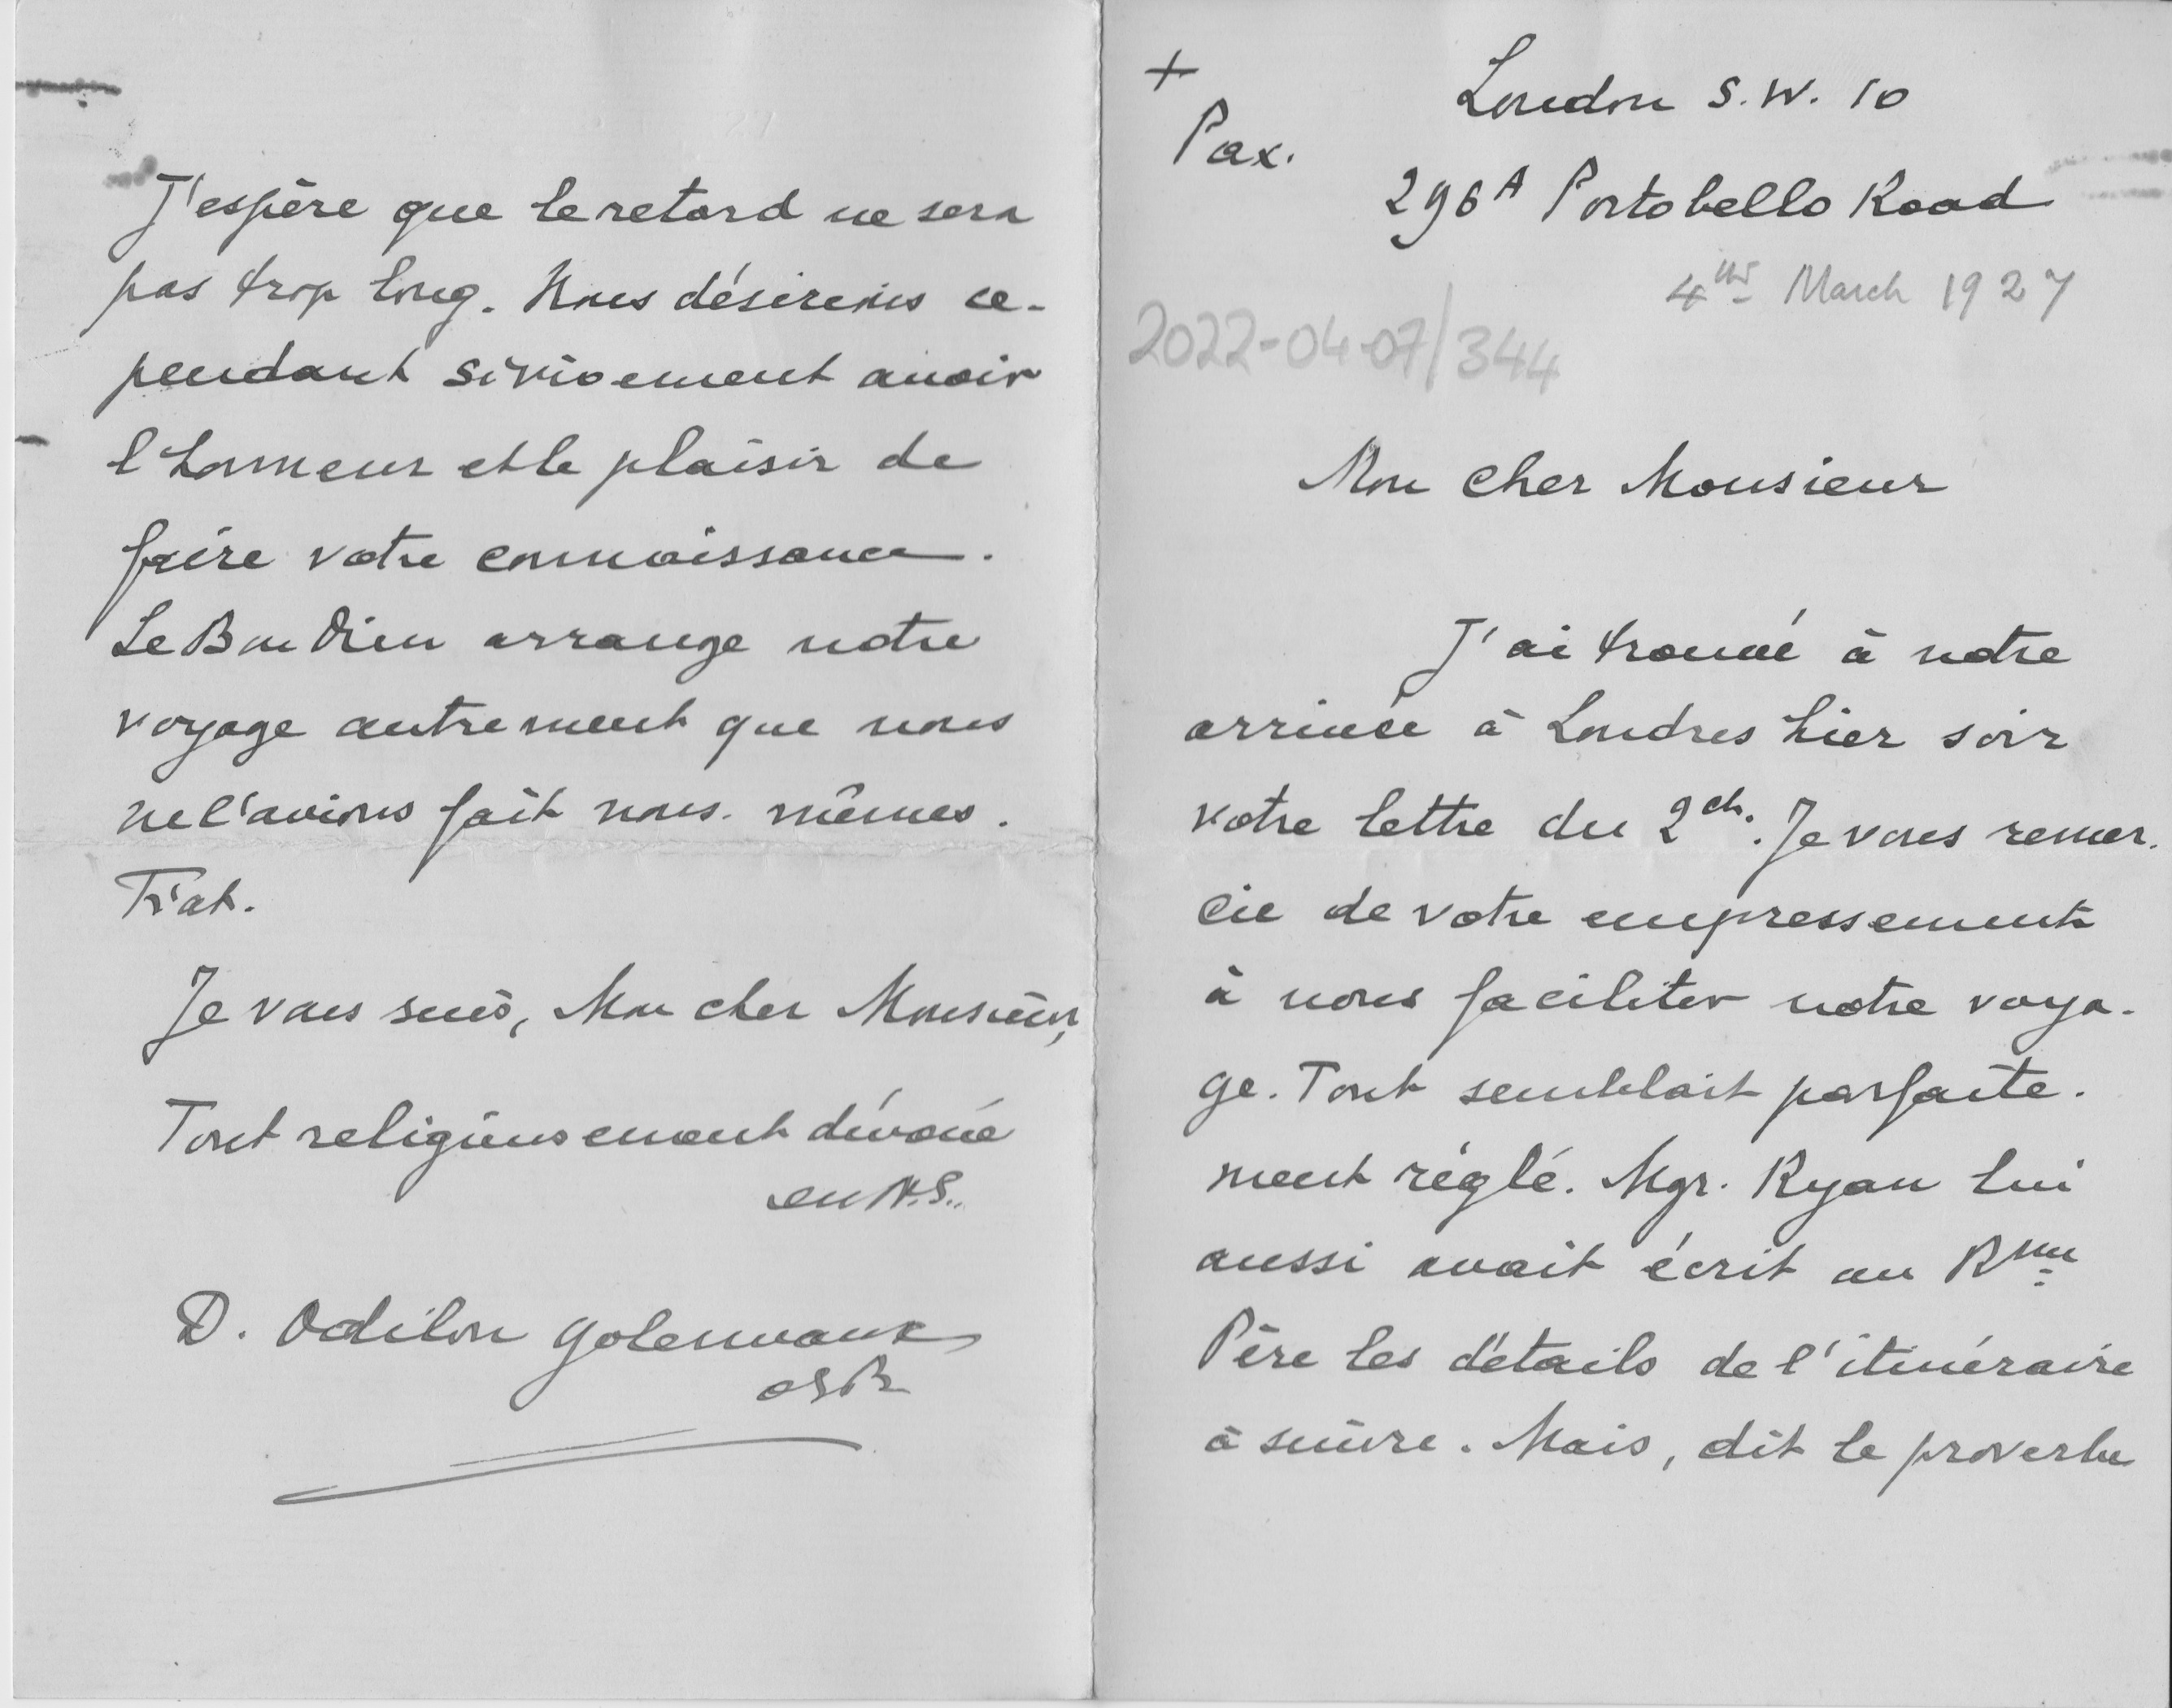 +
Pax.
London S.W. 10
296A Portobello Road
4th March 1927
2022-04-07/344
Mon cher Monsieur
J'ai trouvé à notre
arrivée à Londres hier soir
votre lettre du 2d. Je vous remer-
cie de votre empressement
à nous faciliter notre voya-
ge. Tout semblait parfaite-
ment réglé. Mgr. Ryan lui
aussi avait écrit au Rme
Père les détails de l'itinéraire
à suivre. Mais, dit le proverbe
J'espère que le retard ne sera
pas trop long. Nous désirions ce-
pendant si vivement avoir
l'honneur et le plaisir de
faire votre connaissance.
Le Bon Dieu arrange notre
voyage autrement que nous
ne l'avions fait nous-mêmes.
Fiat.
Je vous suis, Mon cher Monsieur,
Tout religieusement dévoué
en N.S.
D. Odilon Golenvaux
OSB